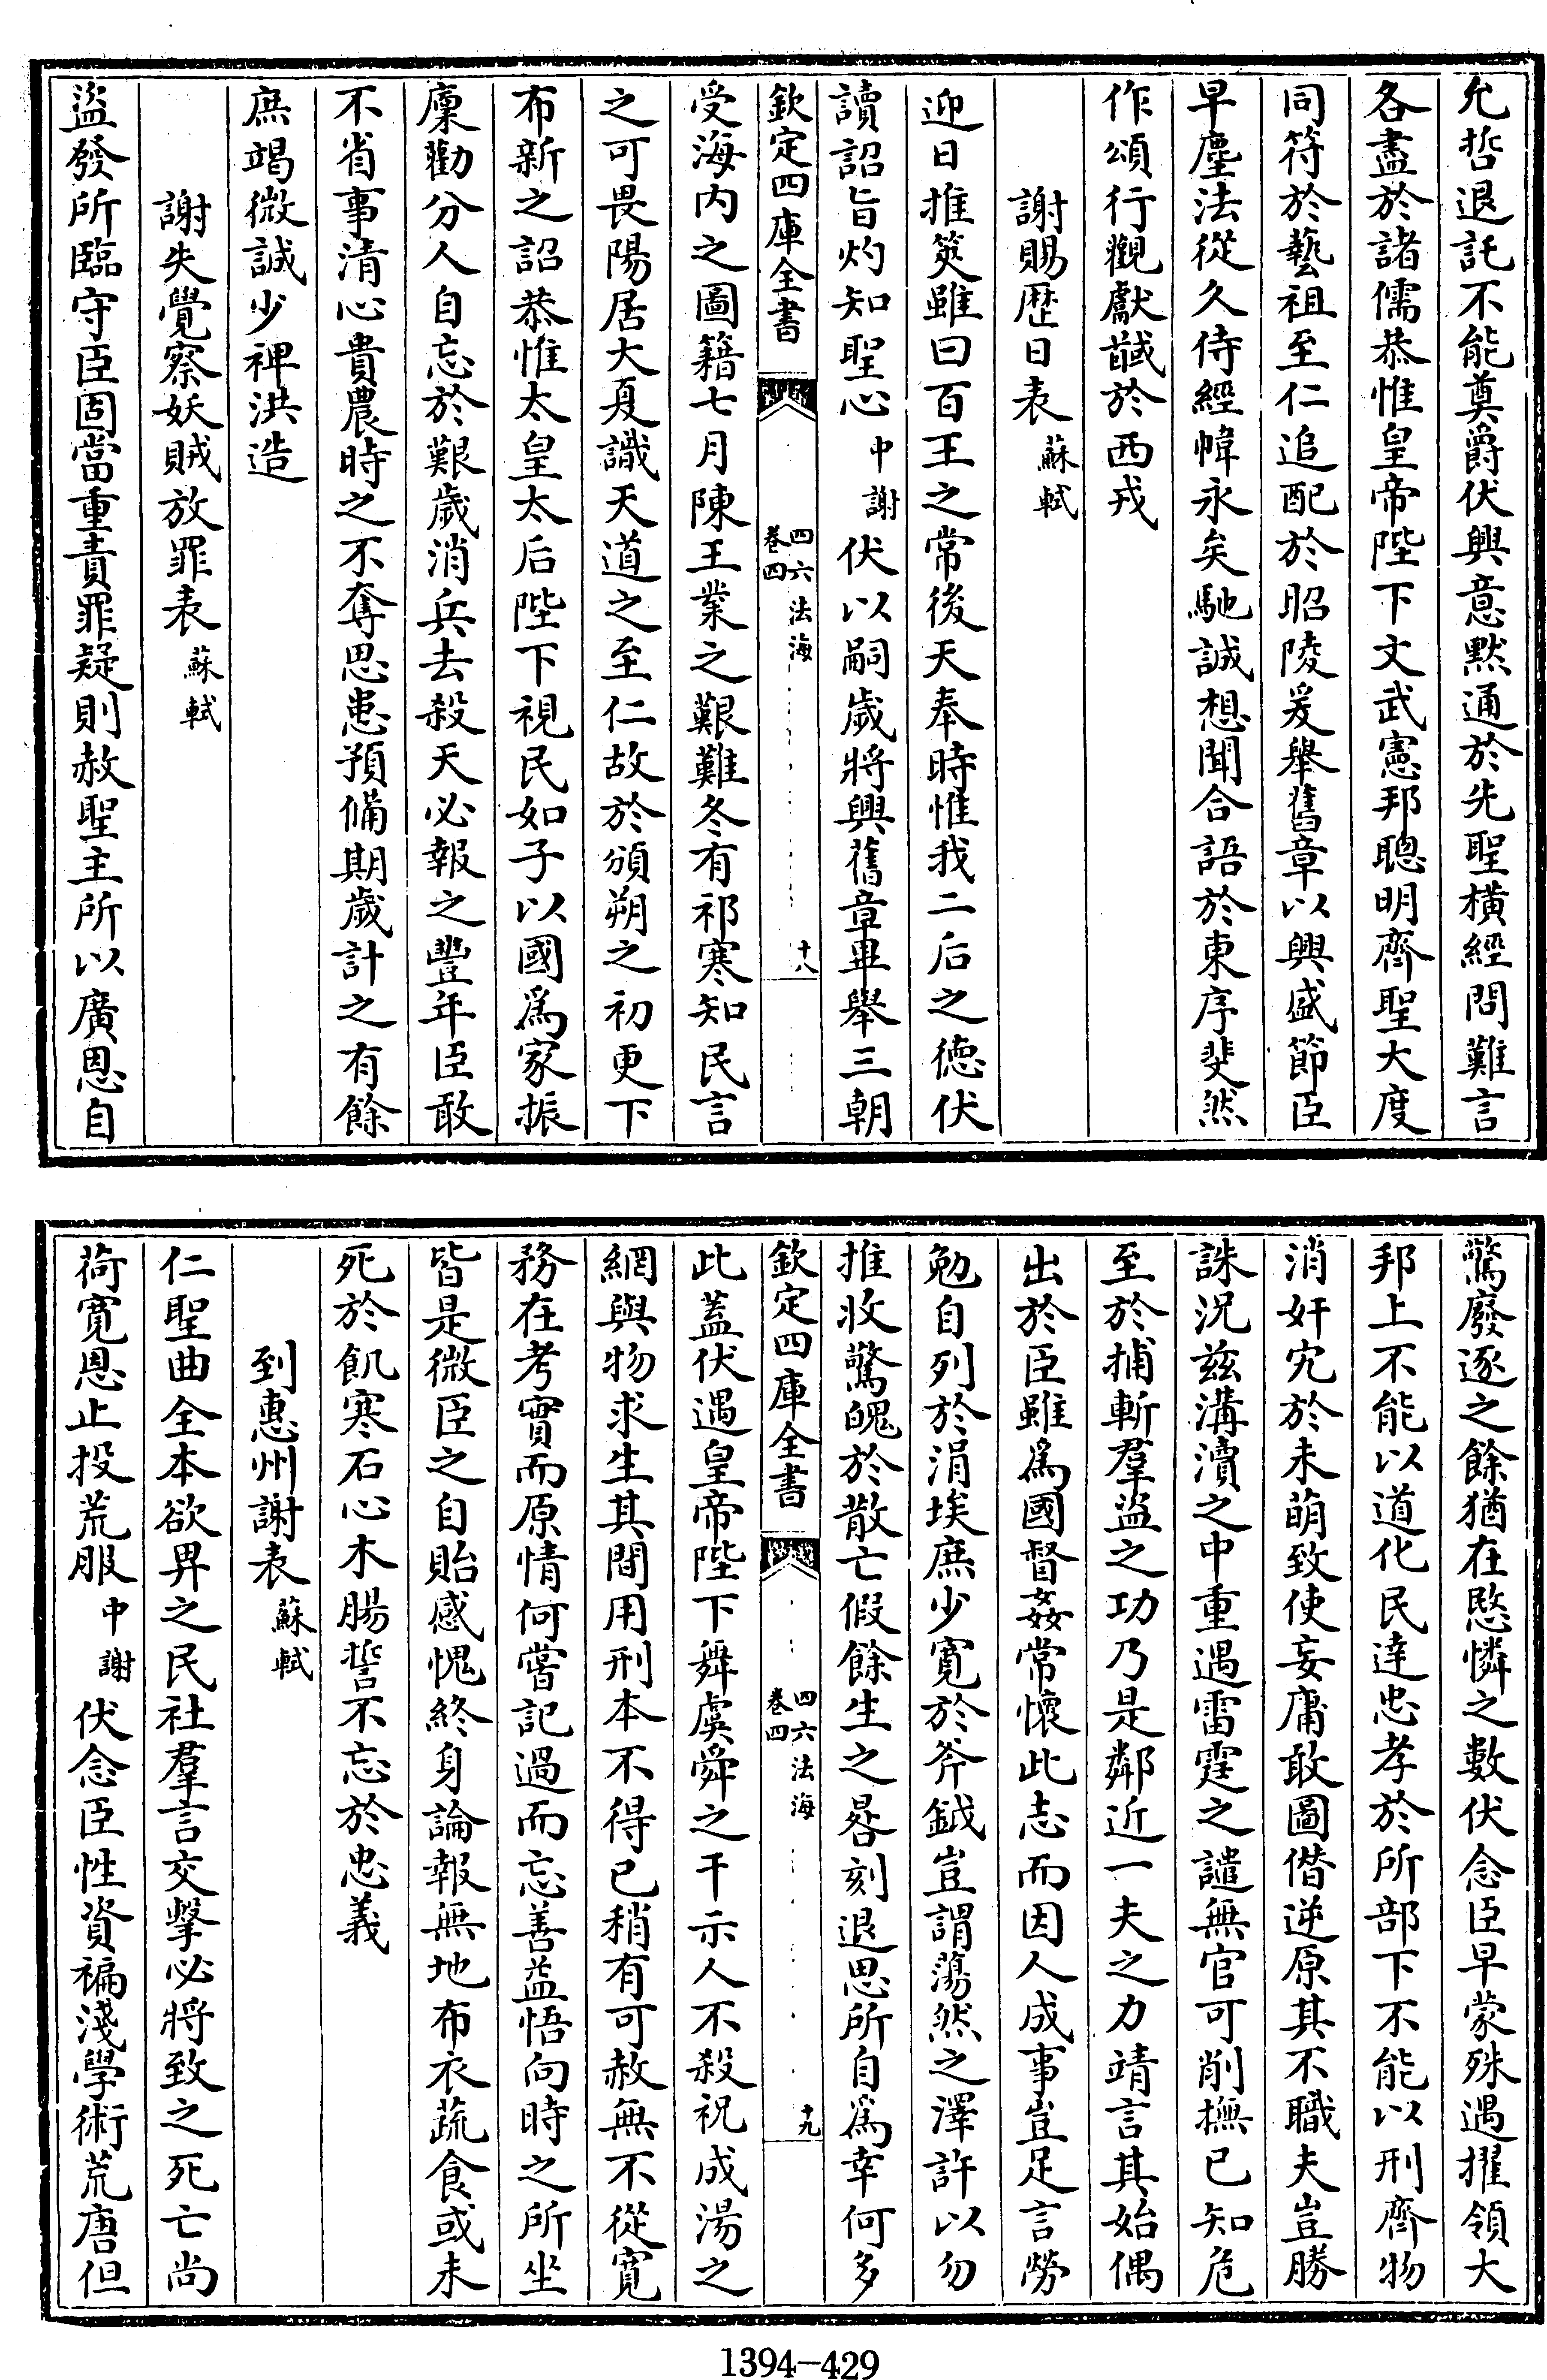 允哲退託不能奠爵伏興意默通於先聖橫經問難言
各盡於諸儒恭惟皇帝陛下文武憲邦聰明齊聖大度
同符於藝祖至仁追配於昭陵爰舉舊章以興盛節臣
早塵法從久侍經幃永矣馳誠想聞合語於東序斐然
作頌行觀獻馘於西戎
謝賜歷日表蘇軾
迎日推筴雖曰百王之常後天奉時惟我二后之德伏
讀詔旨灼知聖心中謝伏以嗣歲將興舊章畢舉三朝
欽定四庫全書
四六法海
卷四
十八
受海内之圖籍七月陳王業之艱難冬有祁寒知民言
之可畏陽居大夏識天道之至仁故於頒朔之初更下
布新之詔恭惟太皇太后陛下視民如子以國為家振
廩勸分人自忘於艱歲消兵去殺天必報之豐年臣敢
不省事清心貴農時之不奪思患預備期歲計之有餘
庶竭微誠少裨洪造
謝失覺察妖賊放罪表蘇軾
盜發所臨守臣固當重責罪疑則赦聖主所以廣恩自
驚廢逐之餘猶在愍憐之數伏念臣早蒙殊遇擢領大
邦上不能以道化民達忠孝於所部下不能以刑齊物
消奸宄於未萌致使妄庸敢圖僭逆原其不職夫豈勝
誅況兹溝瀆之中重遇雷霆之譴無官可削撫已知危
至於捕斬羣盜之功乃是鄰近一夫之力靖言其始偶
出於臣雖為國督姦常懷此志而因人成事豈足言勞
勉自列於涓埃庶少寬於斧鉞豈謂蕩然之澤許以勿
推收驚魄於散亡假餘生之晷刻退思所自為幸何多
欽定四庫全書
四六法海
卷四
十九
此蓋伏遇皇帝陛下舞虞舜之干示人不殺祝成湯之
網與物求生其間用刑本不得已稍有可赦無不從寬
務在考實而原情何嘗記過而忘善益悟向時之所坐
皆是微臣之自貽感愧終身論報無地布衣蔬食或未
死於飢寒石心木腸誓不忘於忠義
到惠州謝表蘇軾
仁聖曲全本欲畀之民社羣言交擊必將致之死亡尚
荷寬恩止投荒服中謝伏念臣性資褊淺學術荒唐但
1394-429